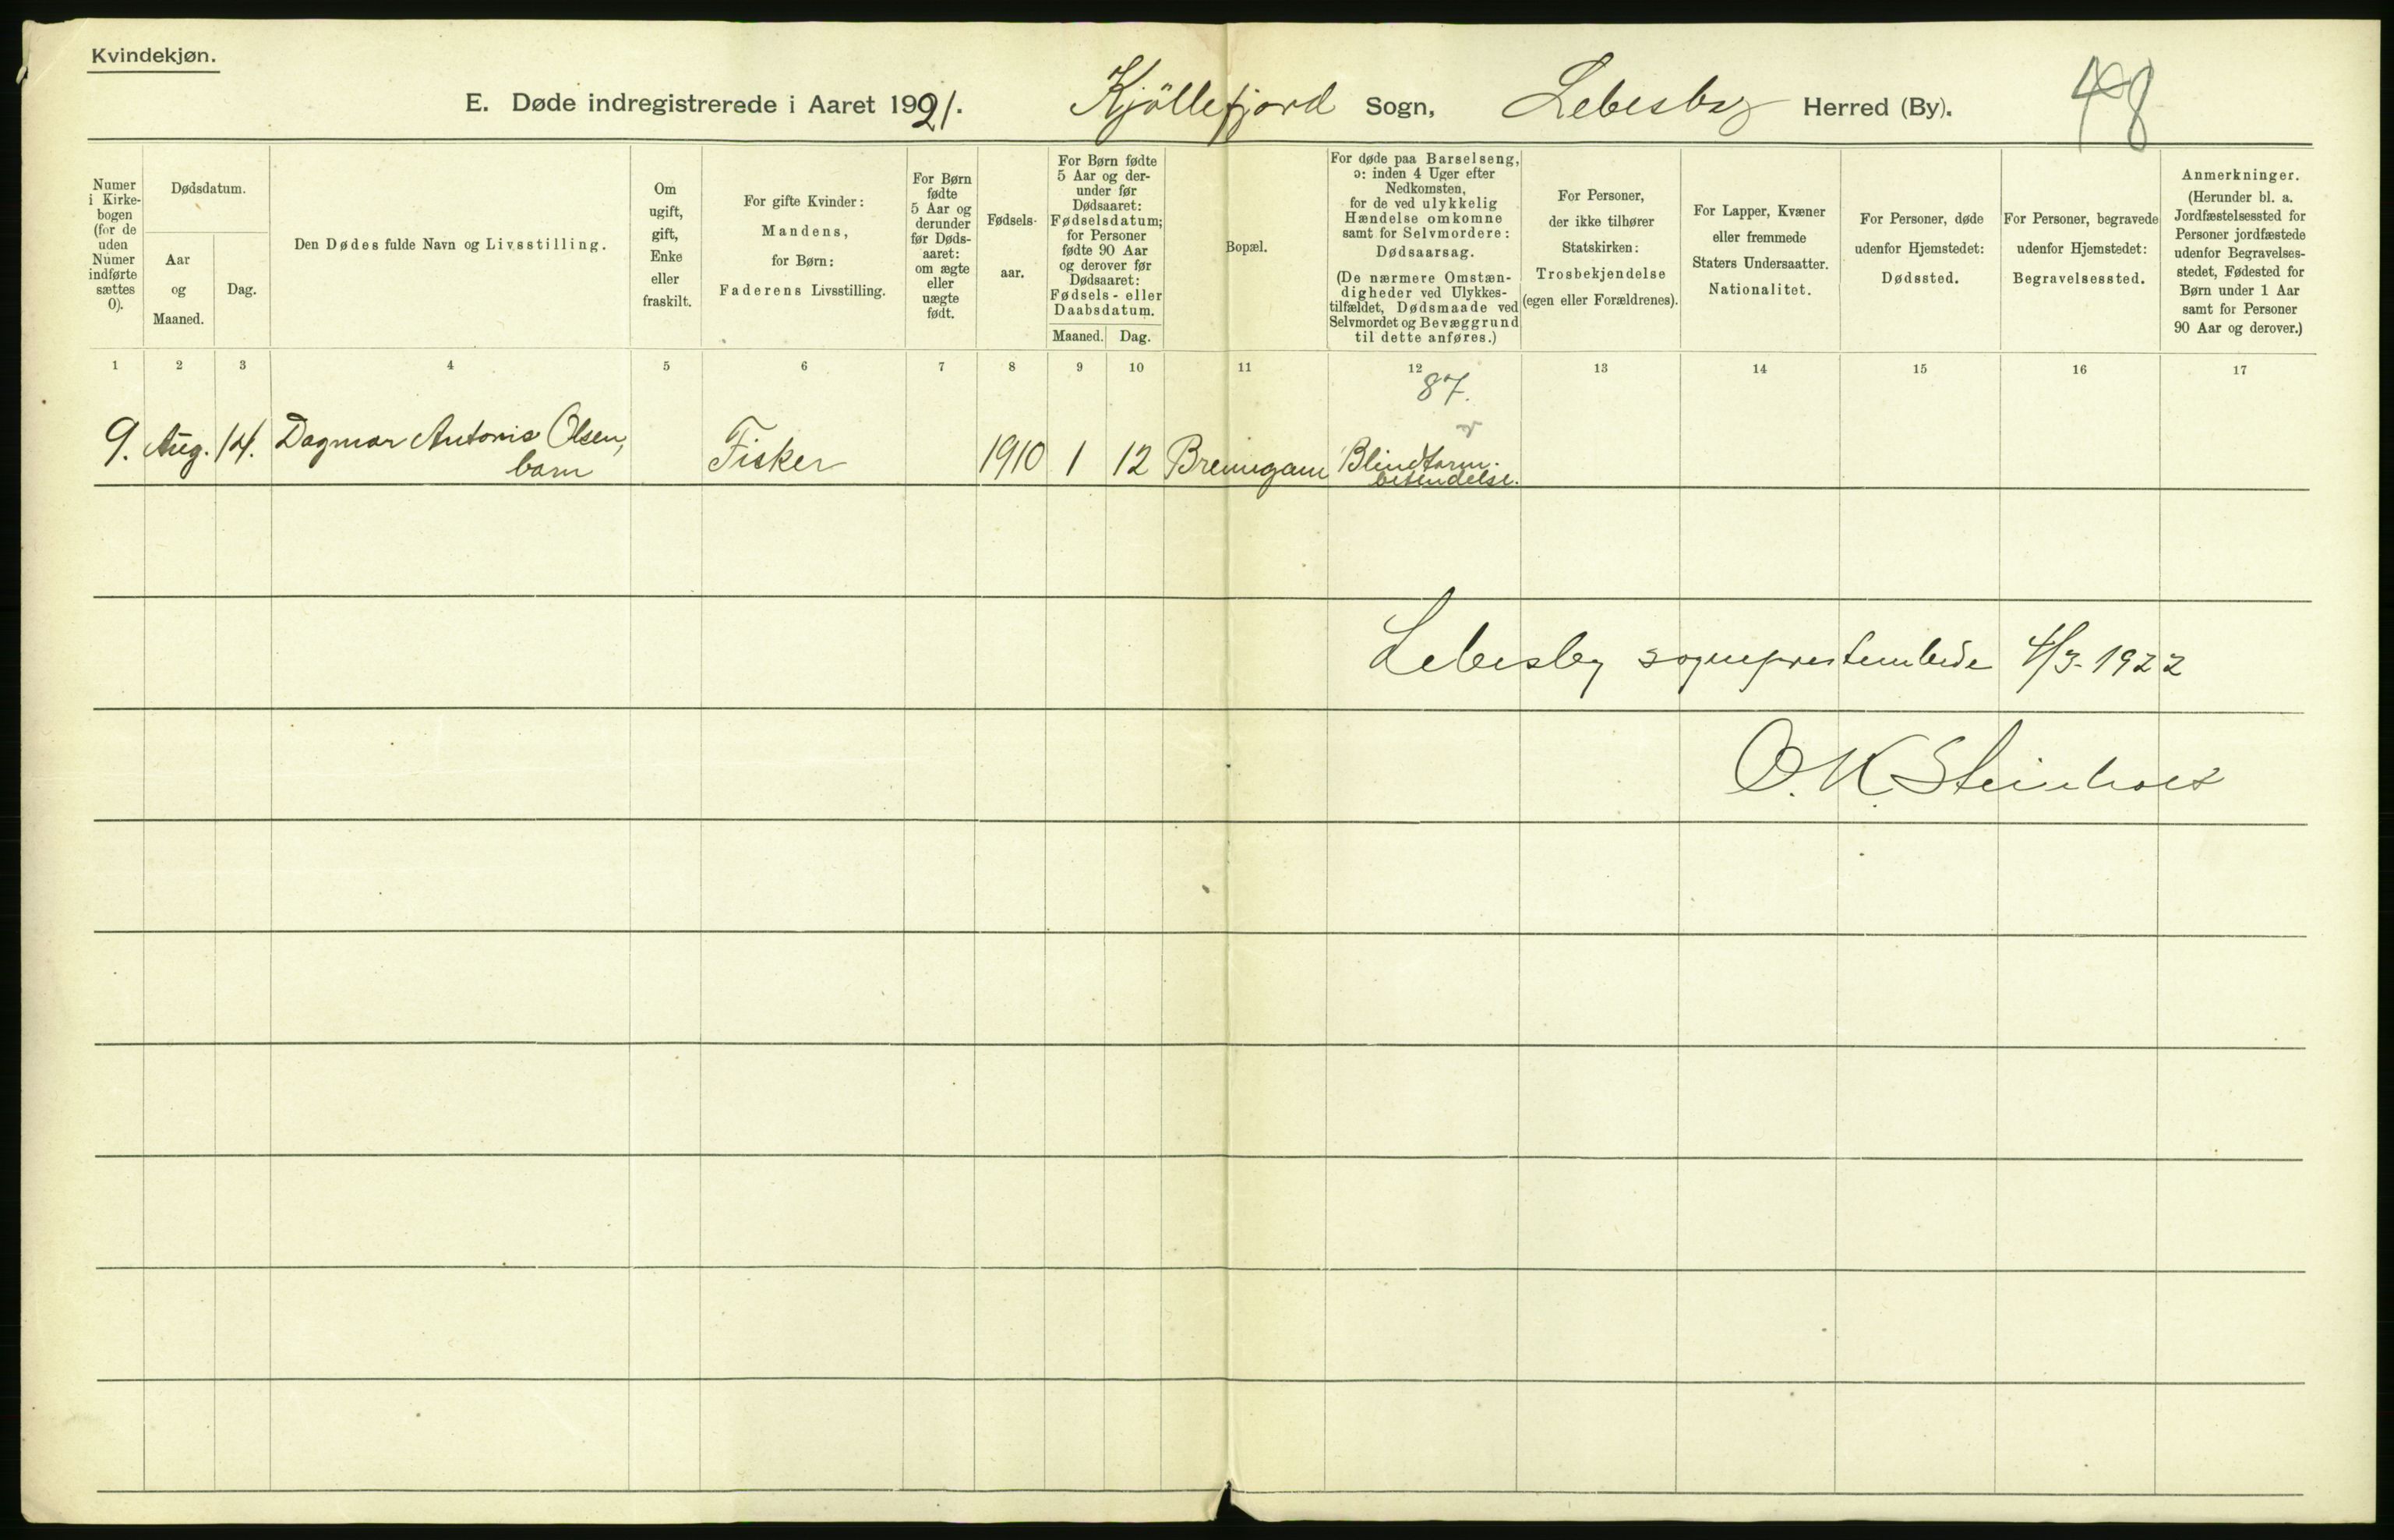 Kvindekjøn.
E. Døde indregistrerede i Aaret 1921. Kjöllefjord Sogn, Lebesby Herred (By). 48
Numer i Kirkebogen (for de uden Numer indførte sættes 0).
Dødsdatum.
Aar og Maaned.
Dag.
Den Dødes fulde Navn og Livsstilling.
Om ugift, gift, Enke eller fraskilt.
For gifte Kvinder: Mandens, for Børn: Faderens Livsstilling.
For Børn fødte 5 Aar og derunder før Dødsaaret: om ægte eller uægte født.
Fødselsaar.
For Børn fødte 5 Aar og derunder før Dødsaaret: Fødselsdatum; for Personer fødte 90 Aar og derover før Dødsaaret: Fødsels- eller Daabsdatum.
Maaned. Dag.
Bopæl.
For døde paa Barselseng, ɔ: inden 4 Uger efter Nedkomsten, for de ved ulykkelig Hændelse omkomne samt for Selvmordere: Dødsaarsag.
(De nærmere Omstændigheder ved Ulykkestilfældet, Dødsmaade ved Selvmordet og Bevæggrund til dette anføres.)
For Personer, der ikke tilhører Statskirken: Trosbekjendelse (egen eller Forældrenes).
For Lapper, Kvæner eller fremmede Staters Undersaatter. Nationalitet.
For Personer, døde udenfor Hjemstedet: Dødssted.
For Personer, begravede udenfor Hjemstedet: Begravelsessted.
Anmerkninger.
(Herunder bl. a. Jordfæstelsessted for Personer jordfæstede udenfor Begravelsesstedet, Fødested for Børn under 1 Aar samt for Personer 90 Aar og derover.)
1 2 3 4 5 6 7 8 9 10 11 12 13 14 15 16 17
87.
9. Aug. 14. Dagmar Antonie Olsen, Fisker 1910 1 12 Brenngam Blindtarm-
barn betendelse.
Lebesby sogneprestembede 4/3-1922
O. K. Steinholt